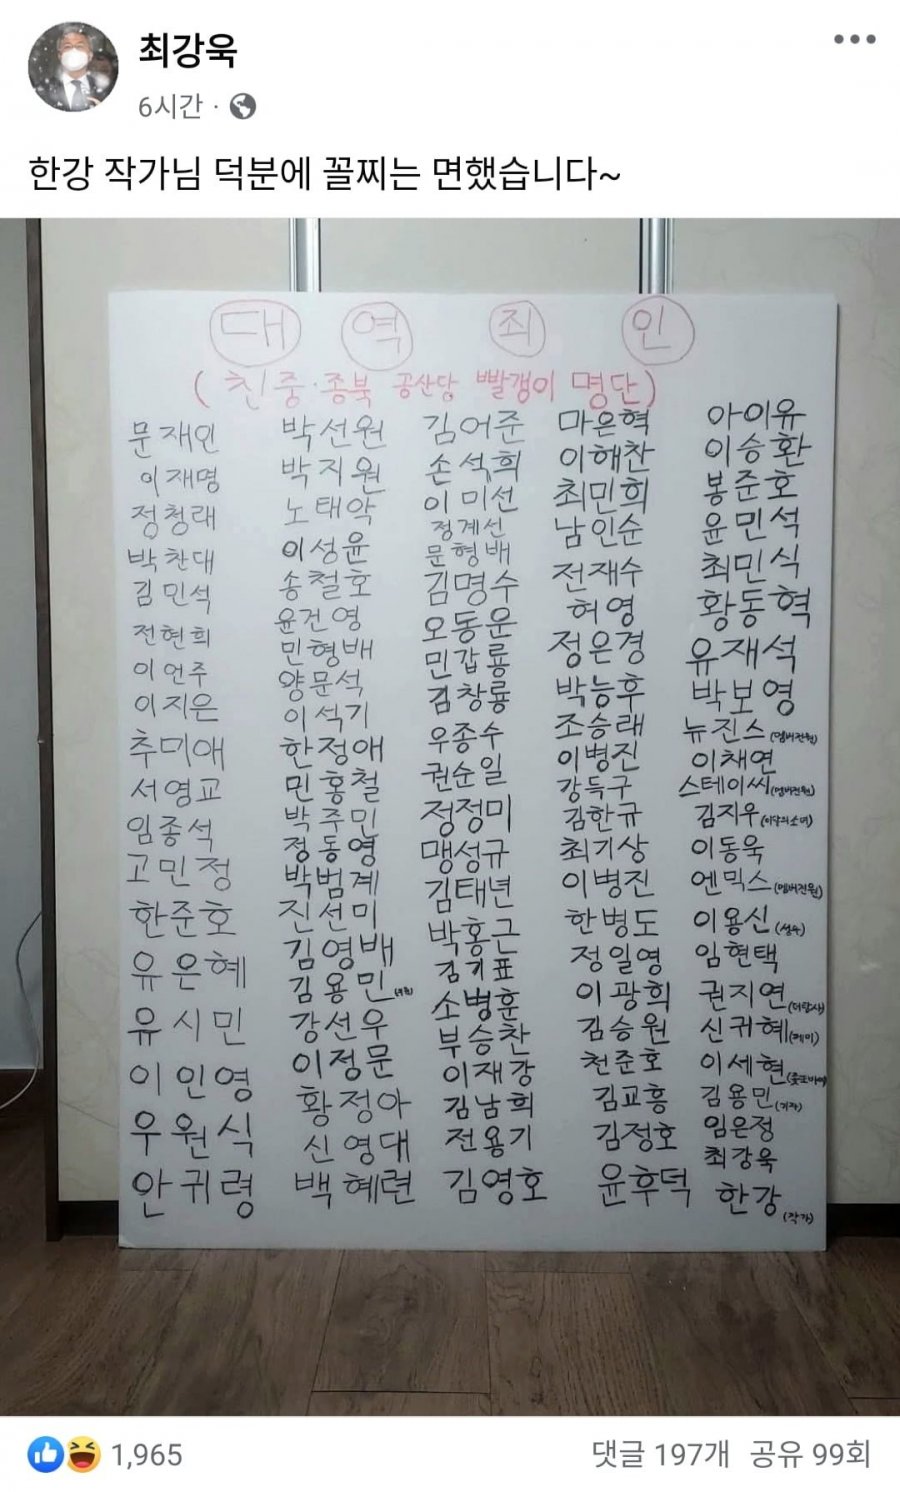 최강욱
6시간 ·
한강 작가님 덕분에 꼴찌는 면했습니다~
대 역 죄 인
(친중·종북 공산당 빨갱이 명단)
문재인
이재명
정청래
박찬대
김민석
전현희
이언주
이지은
추미애
서영교
임종석
고민정
한준호
유은혜
유시민
이인영
우원식
안귀령
박선원
박지원
노태악
이성윤
송철호
윤건영
민형배
양문석
이석기
한정애
민홍철
박주민
정동영
박범계
진선미
김영배
김용민
강선우
이정문
황정아
신영대
백혜련
김어준
손석희
이미선
정계선
문형배
김명수
오동운
민갑룡
김창룡
우종수
권순일
정정미
맹성규
김태년
박홍근
김기표
소병훈
부승찬
이재강
김남희
전용기
김영호
마은혁
이해찬
최민희
남인순
전재수
허영
정은경
박능후
조승래
이병진
강득구
김한규
최기상
이병진
한병도
정일영
이광희
김승원
천준호
김교흥
김정호
윤후덕
아이유
이승환
봉준호
윤민석
최민식
황동혁
유재석
박보영
뉴진스(멤버전원)
이채연
스테이씨(멤버전원)
김지우(이달의소녀)
이동욱
엔믹스(멤버전원)
이용신(성우)
임현택
권지연(더탐사)
신귀혜(케이)
이세현
김용민(기자)
임은정
최강욱
한강(작가)
1,965
댓글 197개 공유 99회